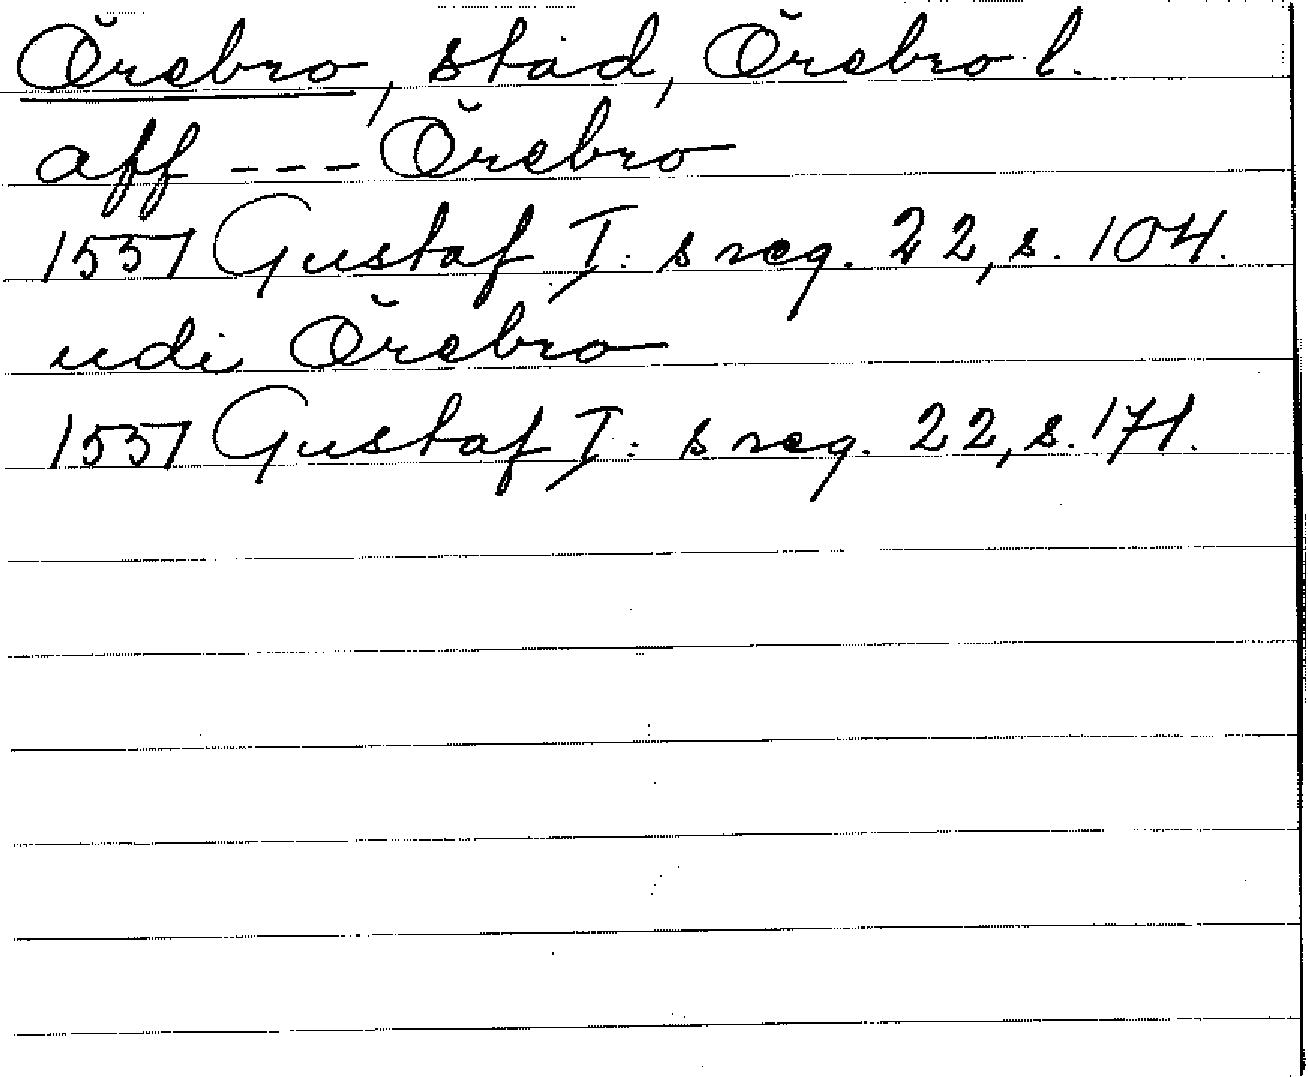 Örebro, stad, Örebro l.
aff --- Örebro
1551 Gustaf I:s reg. 22, s. 104.
udi Örebro
1551 Gustaf I:s reg. 22, s. 171.